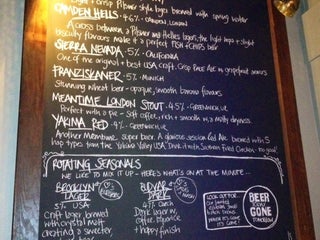 + crisp Pilsner style lager brewed with spring water
CAMDEN HELLS · 4.6% - CAMDEN, LONDON
A cross between a Pilsner and Helles lager, the light hops + slight
biscuity flavours make it a perfect FISH + CHIPS beer
SIERRA NEVADA · 5% - CALIFORNIA
One of the original + best USA craft. Crisp Pale Ale w. grapefruit aromas
FRANZISKANER · 5% - MUNICH
Stunning wheat beer - opaque, smooth banana flavours
MEANTIME LONDON STOUT · 4.5% - GREENWICH, UK
Perfect with a pie - soft coffee, rich + smooth w. a malty dryness
YAKIMA RED · 4% - GREENWICH, UK
Another Meantime super beer. A glorious session Red Ale brewed with 5
hop types from the Yakima Valley USA. Drink it with Southern Fried Chicken - so good!
ROTATING SEASONALS
WE LIKE TO MIX IT UP - HERE'S WHAT'S ON AT THE MINUTE...
BROOKLYN
LAGER
5% USA
Craft lager brewed
with crystal malt
creating a sweeter
BUDVAR
DARK
4.7% Czech
Dark lager w.
coffee flavour
+ hoppy finish
LOOK OUT FOR
OUR
BEER
TODAY
GONE
TOMORROW